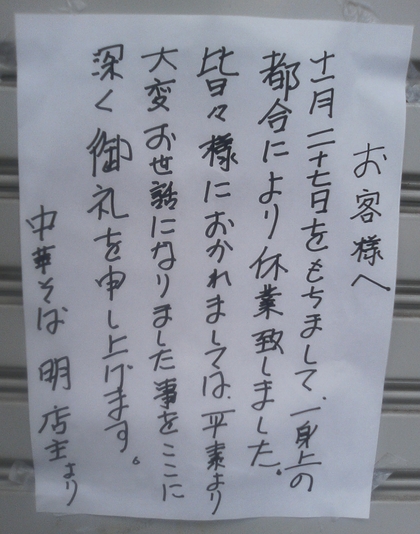 お客様へ
十一月二十七日をもちまして、一身上の
都合により休業致しました。
皆々様におかれましては、平素より
大変お世話になりました事をここに
深く御礼を申し上げます。
中華そば 明 店主より